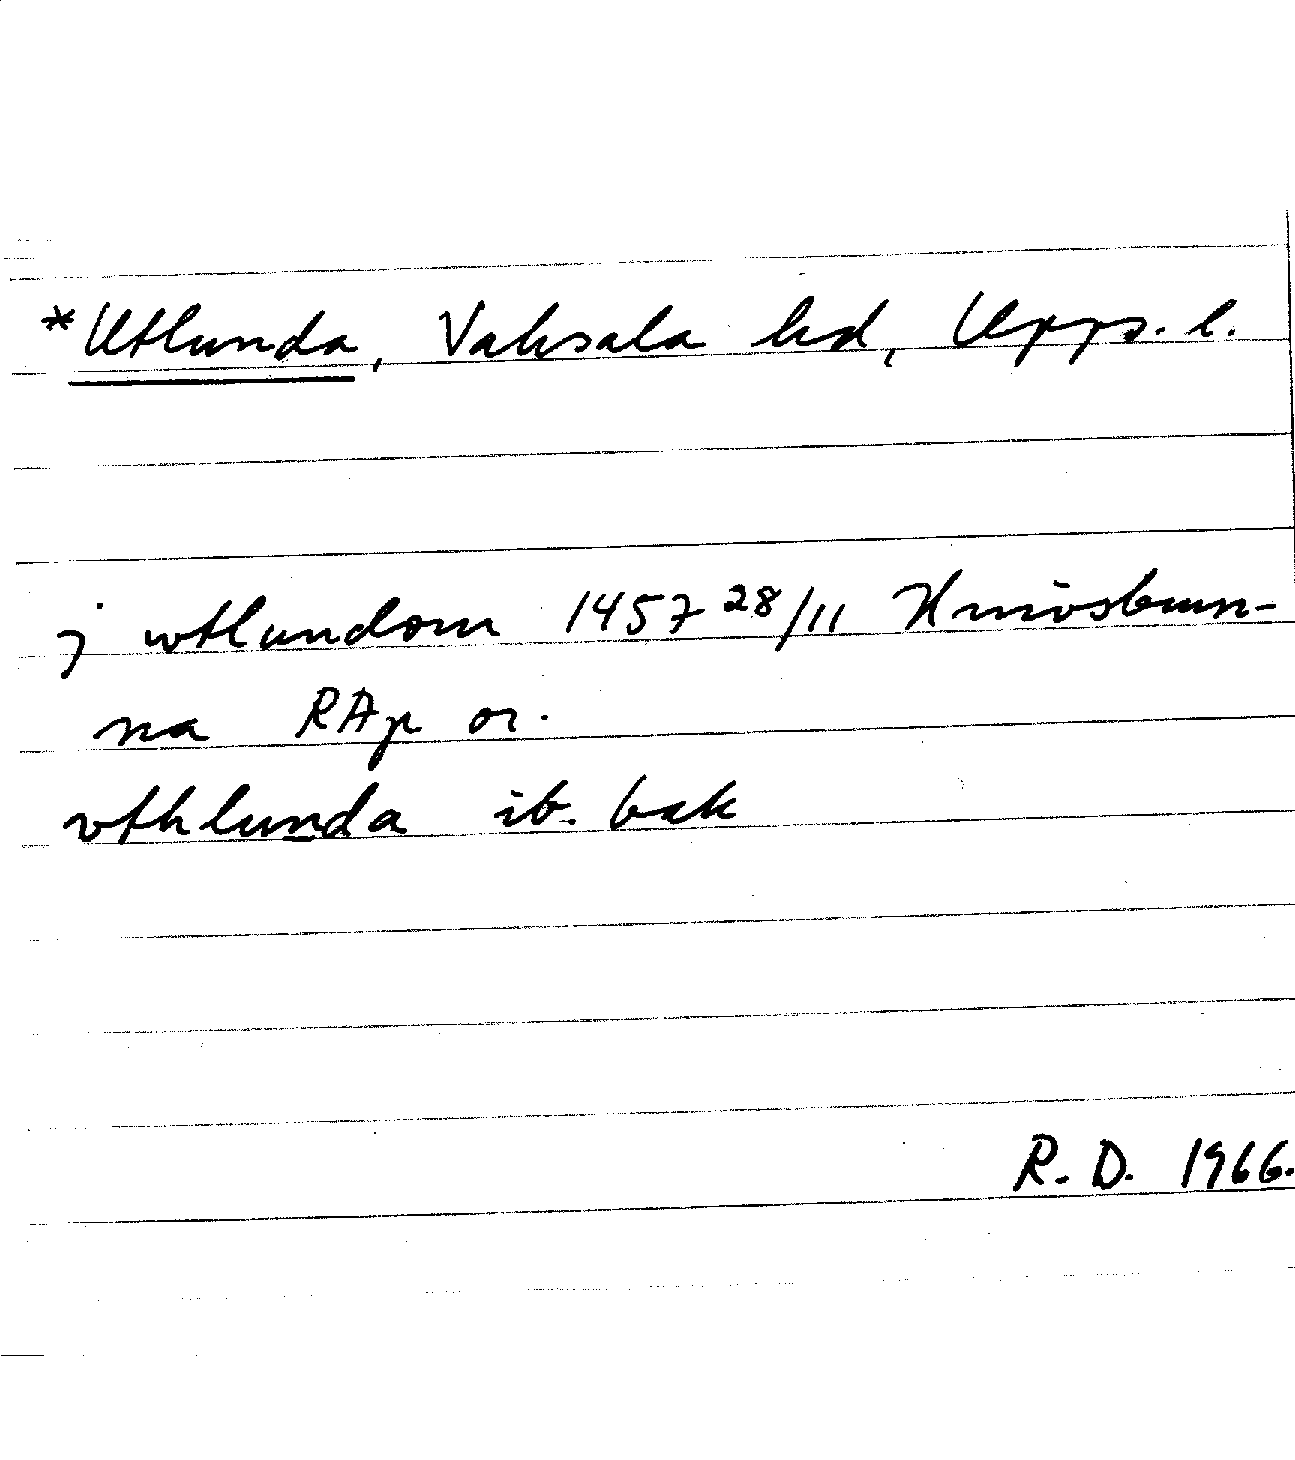 *Utlunda, Vaksala hd, Upps. l.
j wtlundom 1457 28/11 Knivsbrun-
na RAp or.
vthlunda ib. bak
R. D. 1966.